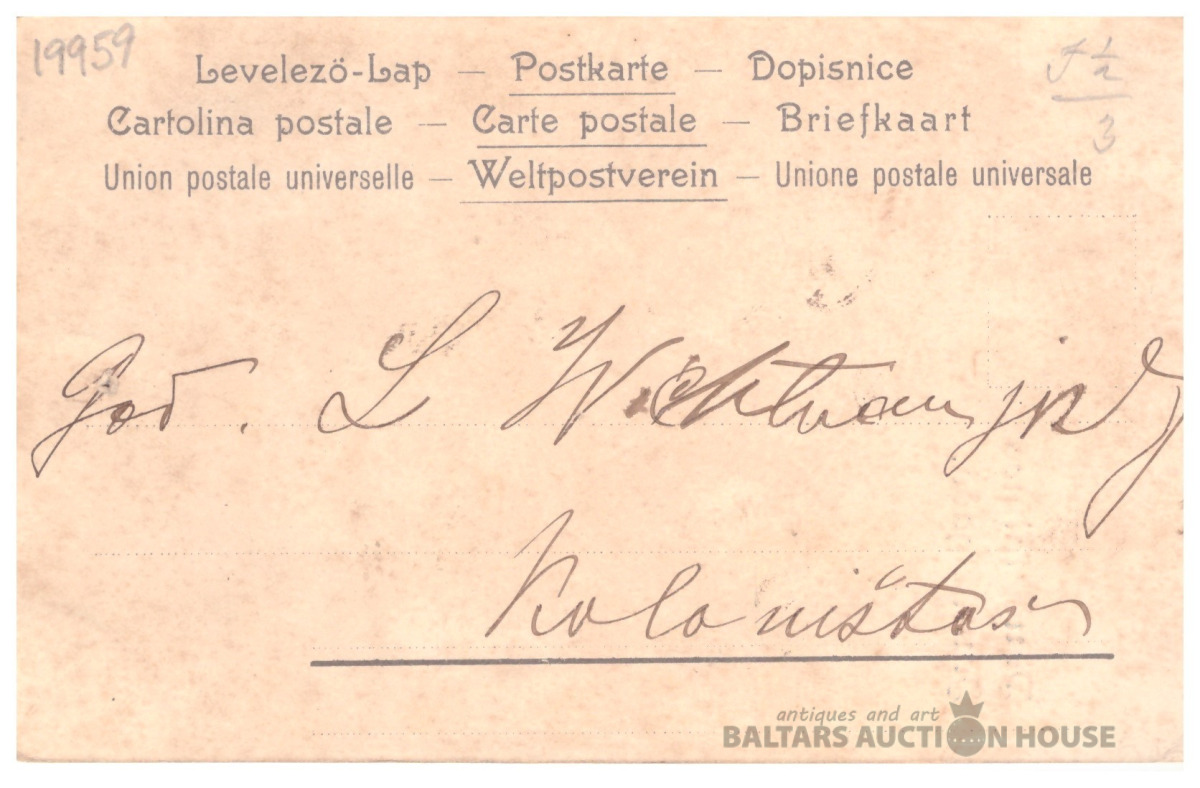 19959
Levelezö-Lap — Postkarte — Dopisnice
Cartolina postale — Carte postale — Briefkaart
Union postale universelle — Weltpostverein — Unione postale universale
God. L
Koloništos
antiques and art
BALTARS AUCTION HOUSE